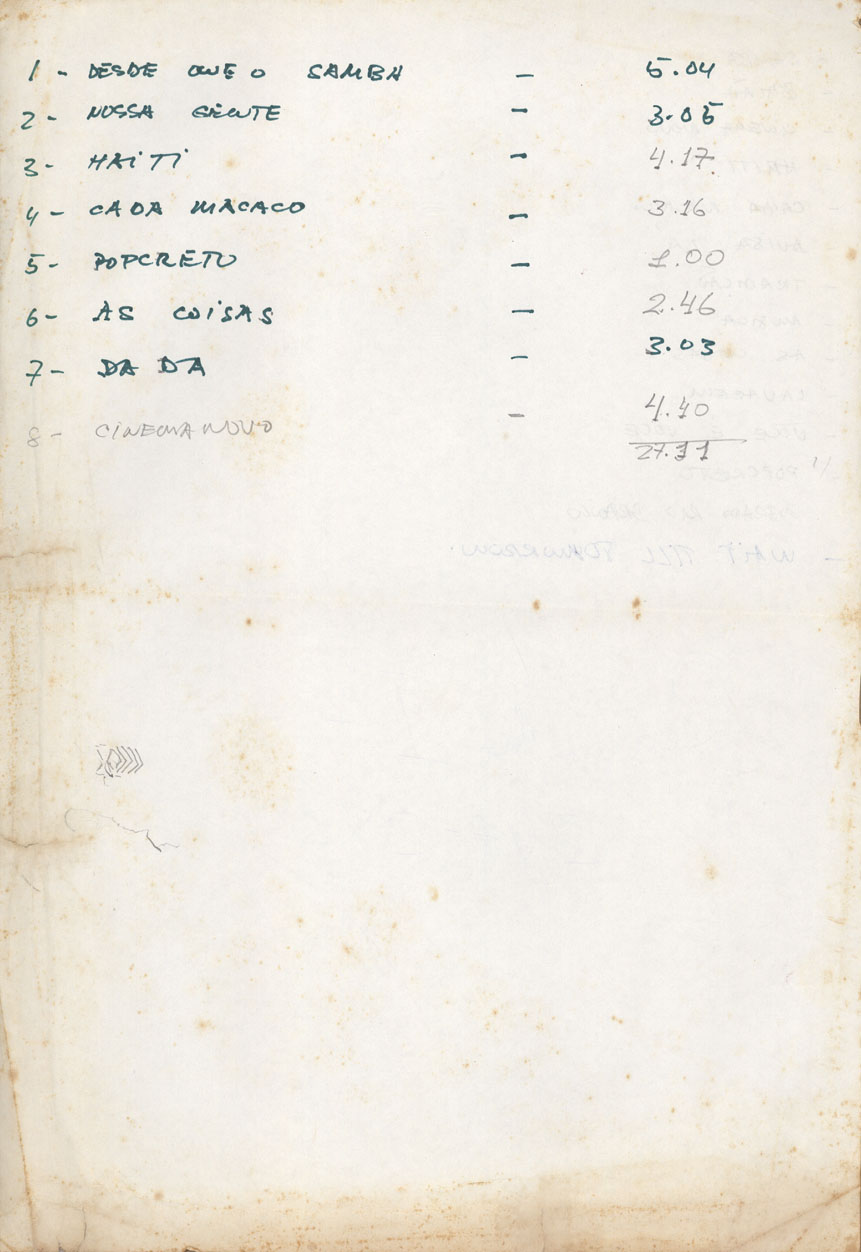 1 - DESDE QUE O SAMBA - 5.04
2 - NOSSA GENTE - 3.05
3 - HAITI - 4.17
4 - CADA MACACO - 3.16
5 - POPCRETO - 1.00
6 - AS COISAS - 2.46
7 - DADA - 3.03
8 - CINEMA NOVO - 4.40
27.31
- WAIT TILL TOMORROW